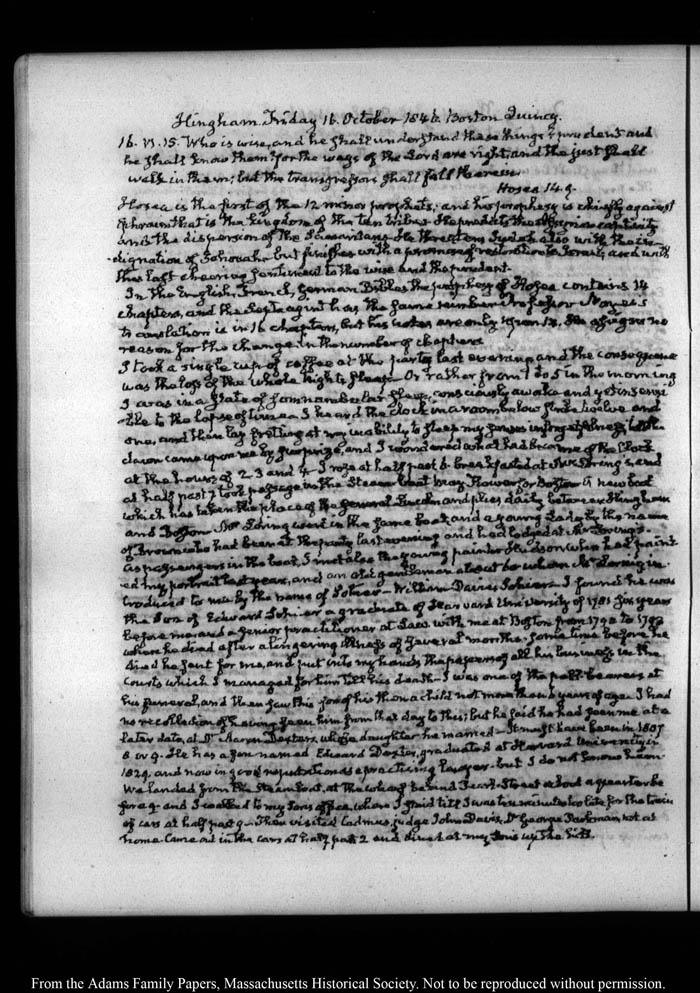 Hingham Friday 16. October 1846. Boston Quincy.
16. VI. 15. Who is wise, and he shall understand these things? prudent and
he shall know them? for the ways of the Lord are right, and the just shall
walk in them; but the transgressors shall fall therein.
Hosea 14. 9.
Hosea is the first of the 12 minor prophets; and his prophecy is chiefly against
Ephraim that is the kingdom of the ten tribes. He predicts the captivity
and the dispersion of the He threatens Judah also with the in-
dignation of Jehovah: but finishes with a promise of restoration to Israel, and with
this last cheering sentiment to the wise and the prudent.
In the English, French, German Bibles the prophecy of Hosea contains 14
chapters, and the Septuagint has the same number. Professor Noyes's
translation is in 16 chapters, but his notes are only upon He assigns no
reason for the change in the number of chapters.
I took a single cup of coffee at the party last evening and the consequence
was the loss of the whole night's sleep. Or rather from 1 to 5 in the morning
I was in a state of somnambular sleep, consciously awake and yet insensi-
ble to the lapse of time. I heard the clock in a room below strike twelve and
one, and then lay fretting at my inability to sleep my
dawn came upon me by surprize, and I wondered what had become of the clock
at the hours of 2 3 and 4. I rose at half past 6. breakfasted at Mr Loring's, and
at half past 7 took passage in the Steam boat May flower for Boston. A new boat
which has taken the place of the General Lincoln and plies daily between Hingham
and Boston. Mr Loring went in the same boat, and a young Lady by the name
of Brown who had been at the party last evening and had lodged at Mr Loring's.
As passengers in the boat, I met also the young painter Hudson who had paint-
ed my portrait last year, and an old gentleman about 60 whom Mr Loring in-
troduced to me by the name of Sohier - William Davies Sohier - I found he was
the Son of Edward Sohier a graduate of Harvard University of 1781 six years
before me and a senior practitioner at Law with me at Boston from 1790 to 1793
when he died after a lingering illness of several months. Some time before he
died he sent for me, and put into my hands the papers of all his business in the
Courts which I managed for him till his death - I was one of the pall bearers at
his funeral, and then saw this son of his then a child not more than 6 years of age. I had
no recollection of having seen him from that day to this; but he said he had seen me at a
later date, at Dr Aaron Dexter's, whose daughter he married - It must have been in 1807
8 or 9. He has a son named Edward Dexter, graduated at Harvard University in
1829. and now in good reputation as a practising lawyer. but I do not know him.
We landed from the Steam boat, at the wharf behind Street about a quarter be-
fore 9 - and I walked to my Son's office, where I staid till I was ten minutes too late for the train
of cars at half past 9 - Then visited Cadmus, Judge John Davis, Dr George Parkman, not at
home. Came out in the cars at half past 2 and dined at my Son's up the hill.
From the Adams Family Papers, Massachusetts Historical Society. Not to be reproduced without permission.